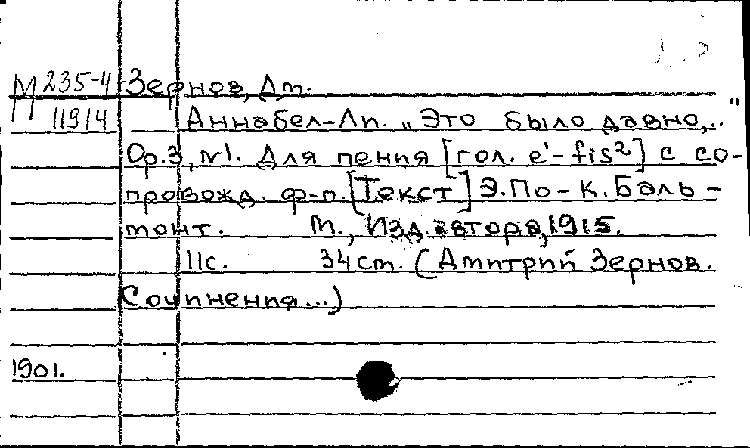 М 235-4 Зернов, Дм.
119/4 Аннабел-Ли. „Это было давно,..."
Ор.3, №1. Для пения [гол. e¹-fis²] с со-
провожд. ф-п. [Текст] Э.По - К. Баль-
монт. М., Изд. автора, 1915.
11с. 34 см. (Дмитрий Зернов.
Сочинения...)
1901.